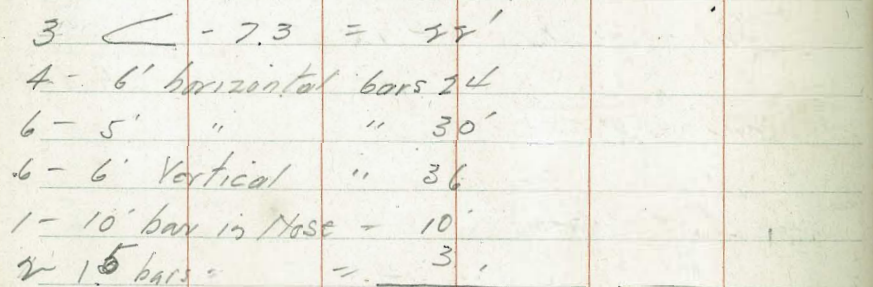 3 - 7.3 = 22'
4 - 6' horizontal bars 24
6 - 5' " " 30'
6 - 6' Vertical " 36
1 - 10' bar in Nose - 10'
2 15 bars " = 3'